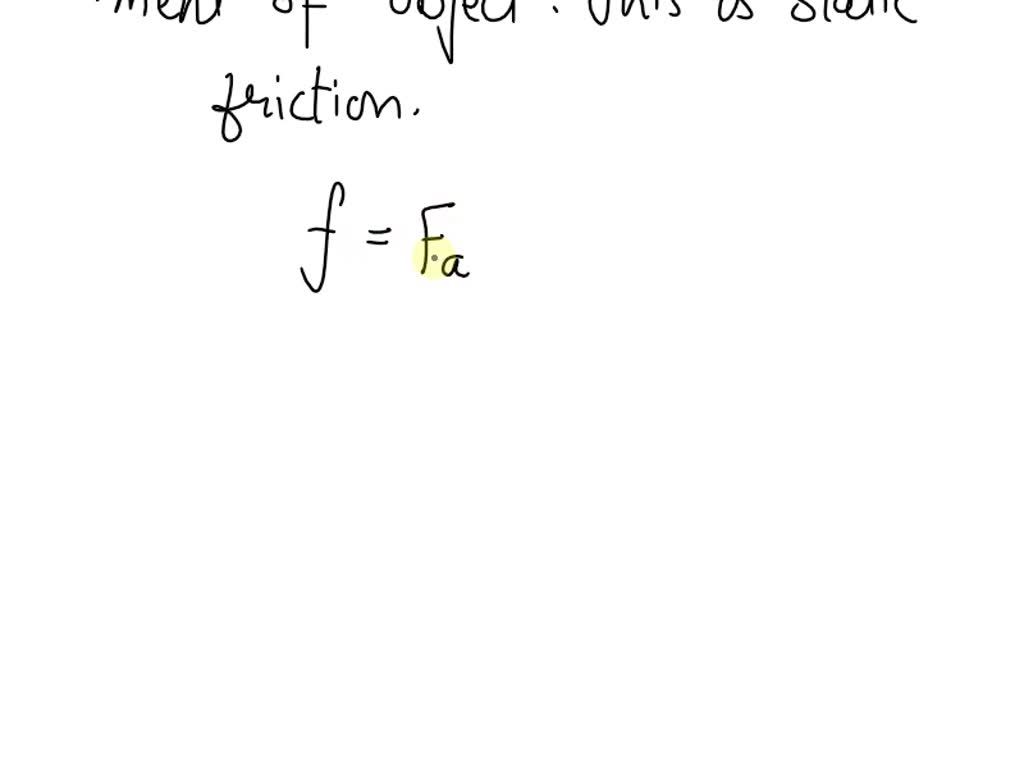 ment of object. This is static
friction.
f = Fa